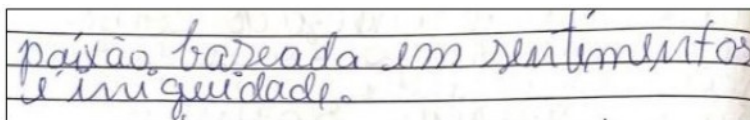 paixão, bazeada em sentimentos
e iniguidade.